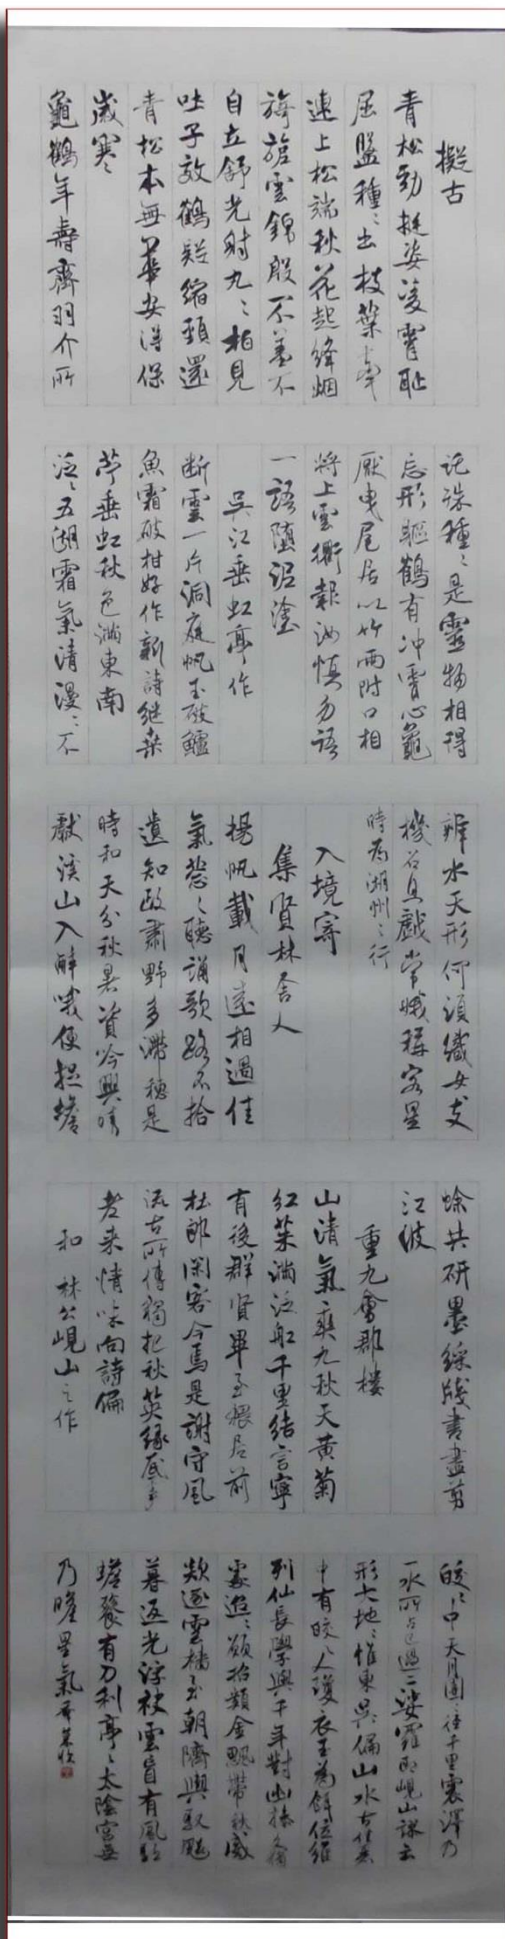 擬古
青松勁挺姿凌霄恥
屈盤種〻出枝葉牽
連上松端秋花起絳烟
旖旎雲錦殷不羞不
自立舒光射丸〻柏見
吐子效鶴疑縮頸還
青松本無華安得保
歲寒
龜鶴年壽齊羽介所
託殊種〻是靈物相得
忘形軀鶴有冲霄心龜
厭曳尾居以竹兩附口相
將上雲衢報汝慎勿語
一語墮泥塗
吳江垂虹亭作
断雲一片洞庭帆玉破鱸
魚霜破柑好作新詩继桑
苧垂虹秋色滿東南
泛〻五湖霜氣清漫〻不
辨水天形何須織女支
機石且戲常娥稱客星
時為湖州之行
入境寄
集賢林舍人
揚帆載月遠相過佳
氣蔥〻聽誦歌路不拾
遺知政肅野多滯穗是
時和天分秋暑資吟興晴
獻溪山入醉哦便捉蟾
蜍共研墨綵牋書盡剪
江波
重九會郡樓
山清氣爽九秋天黃菊
紅茱滿泛船千里結言寧
有後群賢畢至猥居前
杜郎閑客今焉是謝守風
流古所傳獨把秋英缘底事
老来情味向詩偏
和林公峴山之作
皎〻中天月團〻徑千里震澤乃
一水所占已過二娑羅即峴山謬云
形大地〻惟東吳偏山水古佳麗
中有皎〻人瓊衣玉為餌位維
列仙長學與千年對幽操久獨
處迢〻願招類金颸帶秋威
欻逐雲檣至朝隮輿馭飈
暮返光浮袂雲盲有風驅
蟾餮有刀利亭〻太陰宮無
乃瞻星氣